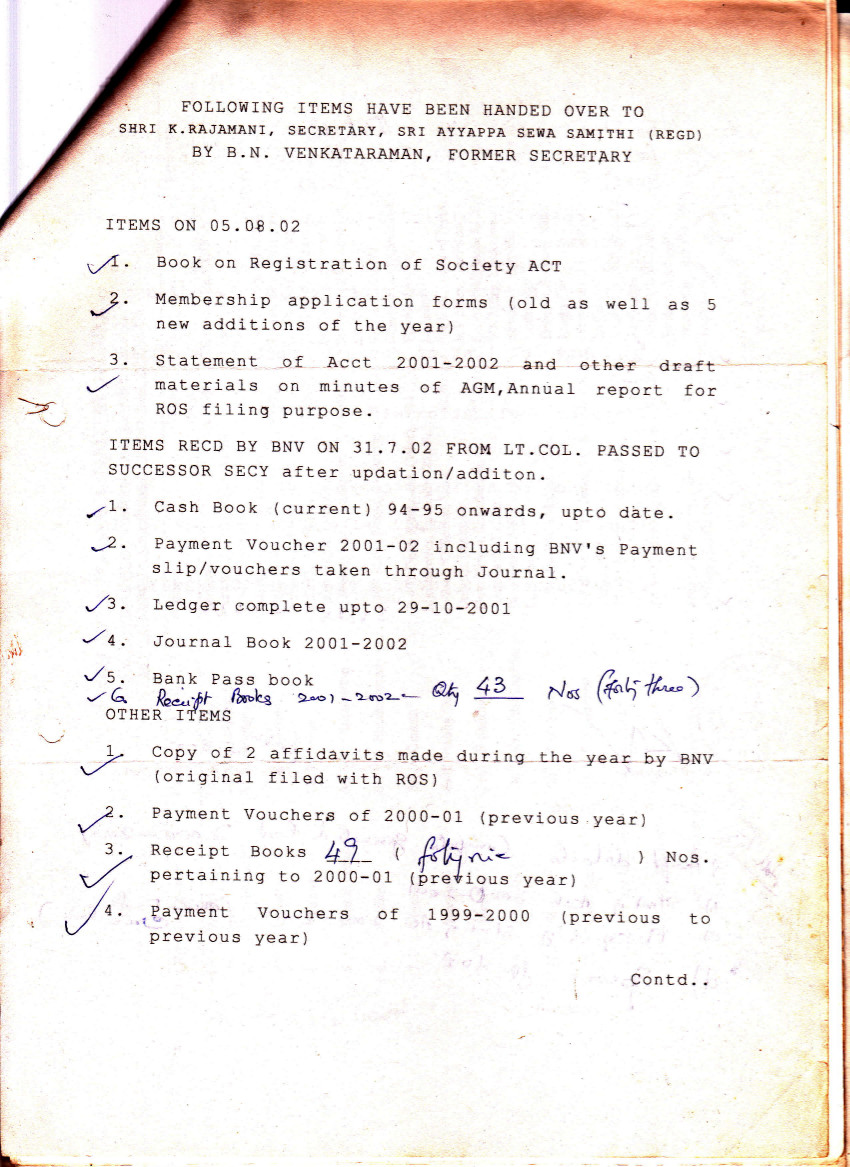 FOLLOWING ITEMS HAVE BEEN HANDED OVER TO
SHRI K.RAJAMANI, SECRETARY, SRI AYYAPPA SEWA SAMITHI (REGD)
BY B.N. VENKATARAMAN, FORMER SECRETARY
ITEMS ON 05.08.02
1. Book on Registration of Society ACT
2. Membership application forms (old as well as 5
new additions of the year)
3. Statement of Acct 2001-2002 and other draft
materials on minutes of AGM,Annual report for
ROS filing purpose.
ITEMS RECD BY BNV ON 31.7.02 FROM LT.COL. PASSED TO
SUCCESSOR SECY after updation/additon.
1. Cash Book (current) 94-95 onwards, upto date.
2. Payment Voucher 2001-02 including BNV's Payment
slip/vouchers taken through Journal.
3. Ledger complete upto 29-10-2001
4. Journal Book 2001-2002
5. Bank Pass book
6. Receipt Books 2001-2002- Qty 43 Nos (forty three)
OTHER ITEMS
1. Copy of 2 affidavits made during the year by BNV
(original filed with ROS)
2. Payment Vouchers of 2000-01 (previous year)
3. Receipt Books 49 ( ) Nos.
pertaining to 2000-01 (previous year)
4. Payment Vouchers of 1999-2000 (previous to
previous year)
Contd..